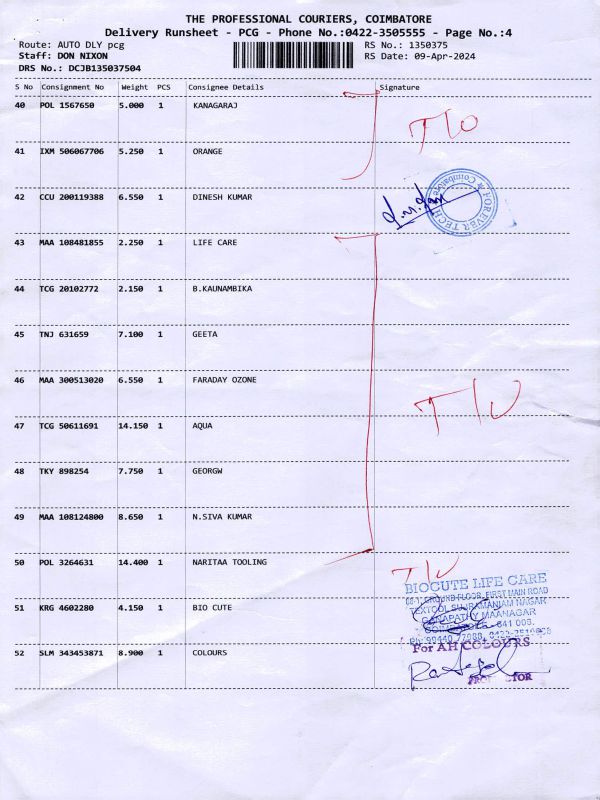 THE PROFESSIONAL COURIERS, COIMBATORE
Delivery Runsheet - PCG - Phone No.:0422-3505555 - Page No.:4
Route: AUTO DLY pcg RS No.: 1350375
Staff: DON NIXON RS Date: 09-Apr-2024
DRS No.: DCJB135037504
S No Consignment No Weight PCS Consignee Details Signature
40 POL 1567650 5.000 1 KANAGARAJ
T/O
41 IXM 506067706 5.250 1 ORANGE
42 CCU 200119388 6.550 1 DINESH KUMAR
FOREVER TECH ★ Coimbatore
43 MAA 108481855 2.250 1 LIFE CARE
44 TCG 20102772 2.150 1 B.KAUNAMBIKA
45 TNJ 631659 7.100 1 GEETA
46 MAA 300513020 6.550 1 FARADAY OZONE
47 TCG 50611691 14.150 1 AQUA
48 TKY 898254 7.750 1 GEORGW
49 MAA 108124800 8.650 1 N.SIVA KUMAR
50 POL 3264631 14.400 1 NARITAA TOOLING
BIOCUTE LIFE CARE
GROUND FLOOR, FIRST MAIN ROAD
51 KRG 4602280 4.150 1 BIO CUTE
GANAPATHY MAANAGAR
641 006.
For AH COLOURS
52 SLM 343453871 8.900 1 COLOURS